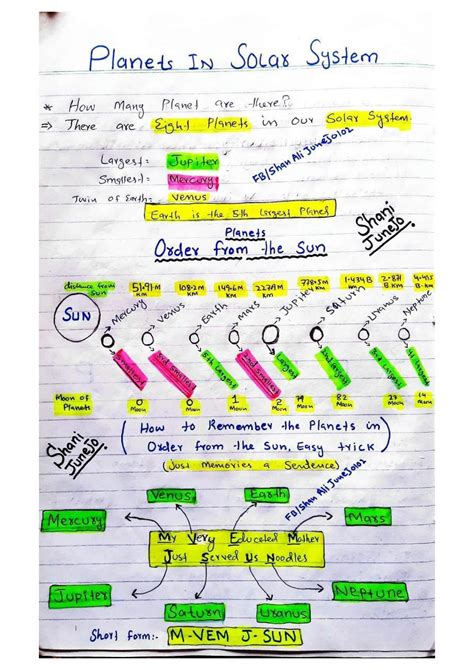 Planets In Solar System
* How Many Planet are there?
⇒ There are Eight Planets in our Solar System.
Largest = Jupiter
Smallest = Mercury
Twin of Earth = Venus
FB/Shan Ali Junejo102
Earth is the 5th Largest Planet
Shani Junejo
Planets
Order from the Sun
distance from Sun
51.91 M KM
108.2 M KM
149.6 M KM
227.9 M KM
778.5 M KM
1.434 B KM
2.871 B.KM
SUN
Mercury
Venus
Earth
Mars
Jupiter
Saturn
Uranus
Neptune
Smallest
3rd Smallest
5th Largest
2nd Smallest
Largest
2nd Largest
3rd Largest
4 Largest
Moon of Planets
0 Moon
0 Moon
1 Moon
2 Moon
79 Moon
82 Moon
27 Moon
14 Moon
(How to Remember the Planets in
Order from the Sun, Easy trick)
(Just Memories a Sentence)
Shani Junejo
FB/Shan Ali Junejo102
Venus
Earth
Mercury
Mars
My Very Educated Mother
Just Served Us Noodles
Jupiter
Neptune
Saturn
Uranus
Short form:- M-VEM J-SUN